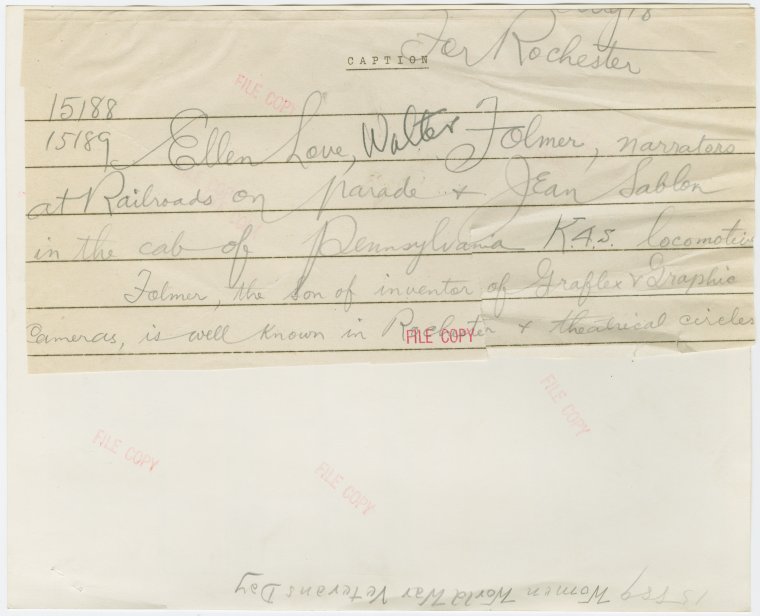 For Rochester
CAPTION
FILE COPY
15188
15189 Ellen Love, Walter Folmer, narrators
at Railroads on Parade & Jean Sablon
in the cab of Pennsylvania K4s. locomotive
Folmer, the son of inventor of Graflex & Graphic
Cameras, is well known in Rochester & theatrical circles
FILE COPY
FILE COPY
FILE COPY
FILE COPY
Women World War Veterans Day